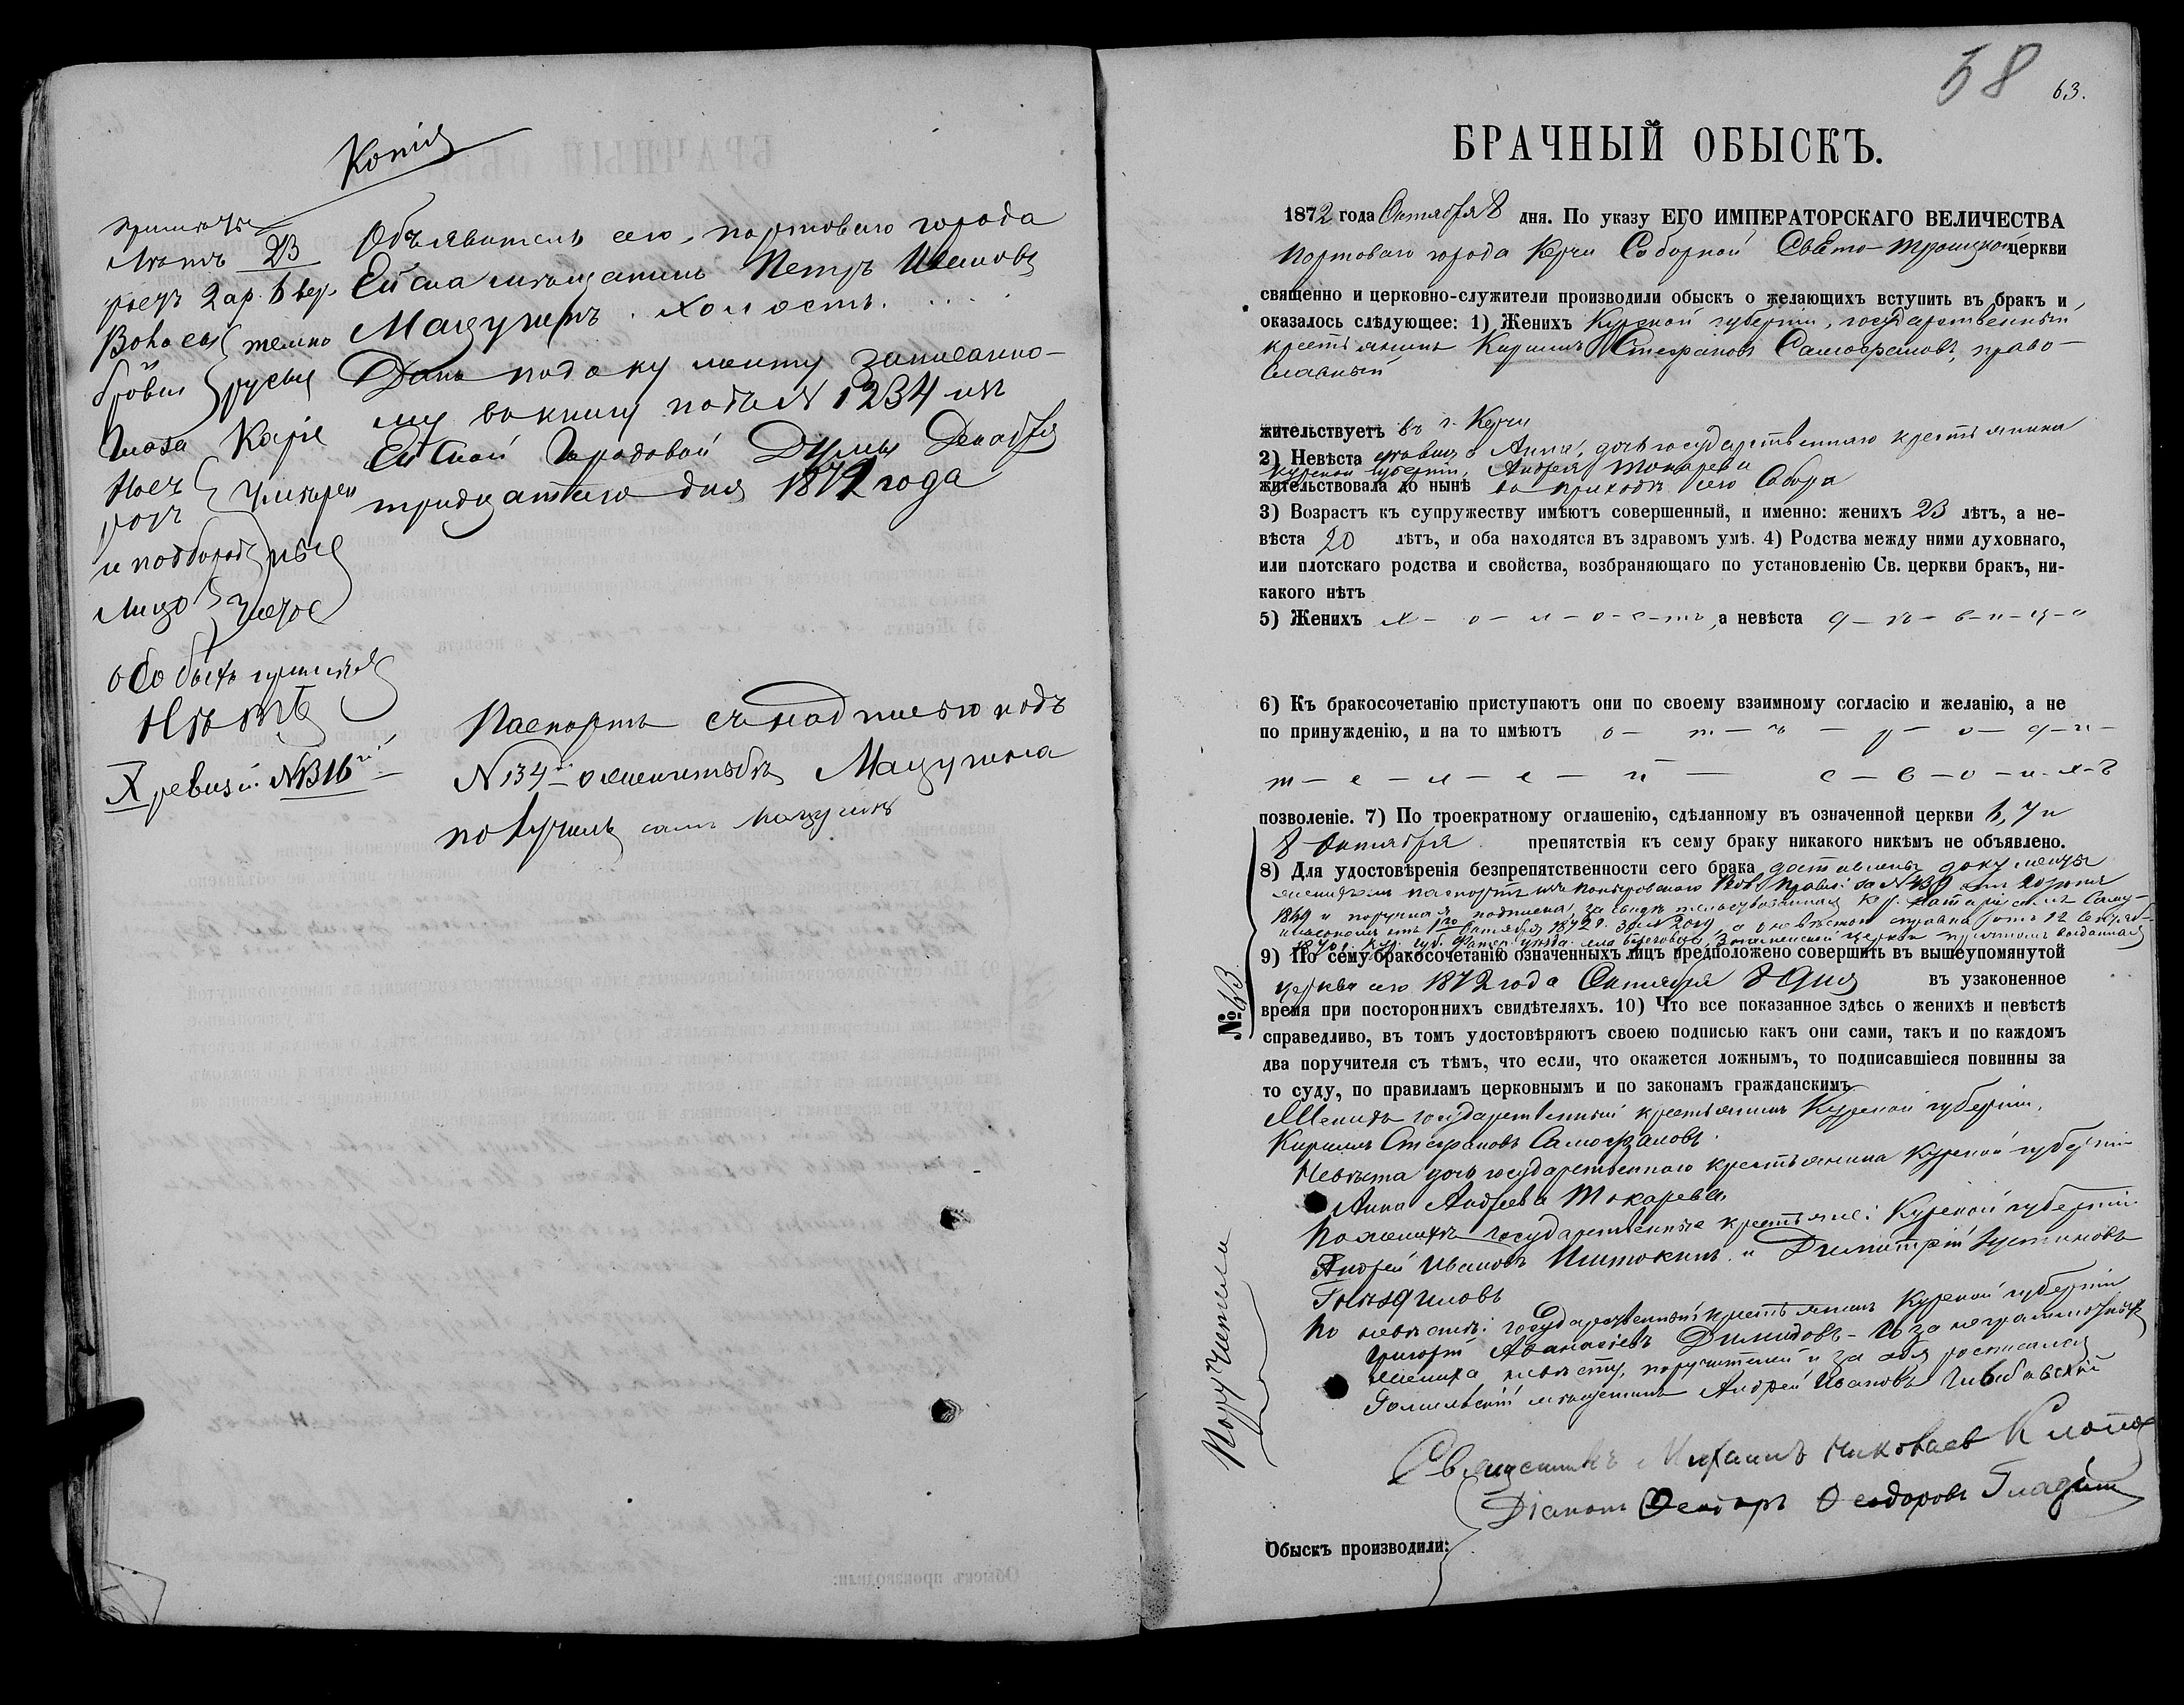 Копія
Примѣты
Лѣтъ 23
ростъ 2 ар. 6 вер.
Волосы
и
брови
темно
русые
Глаза Каріе
Носъ
ротъ
и подбород
умѣрен
ные
Лицо чистое
особыхъ примѣтъ
Нѣтъ
X ревизіи № 316й
Объявитель сего, портоваго города
Ейска мѣщанинъ Петръ Ивановъ
Мацужинъ. холостъ. . . . .
Данъ подокументу записанно-
му въ книгу подъ № 1234 изъ
Ейской Городовой Думы Декабря
тридцатаго дня 1871 года
Паспортъ съ надписью подъ
№ 134 о женитьбѣ Мацужина
получилъ самъ Мацужинъ
58
63.
БРАЧНЫЙ ОБЫСКЪ.
1872 года Октября 8 дня. По указу ЕГО ИМПЕРАТОРСКАГО ВЕЛИЧЕСТВА
Портоваго города Керчи Соборной Свято-Троицкой церкви
священно и церковно-служители производили обыскъ о желающихъ вступить въ бракъ и
оказалось слѣдующее: 1) Женихъ Курской губерніи, государственный
крестьянинъ Кириллъ Стефановъ Самофаловъ, право-
славный
жительствуетъ въ г. Керчи
2) Невѣста дѣвица Анна, дочь государственнаго крестьянина
Курской губерніи, Андрея Токарева
жительствовала до нынѣ въ приходѣ сего Собора
3) Возрастъ къ супружеству имѣютъ совершенный, и именно: женихъ 23 лѣтъ, а не-
вѣста 20 лѣтъ, и оба находятся въ здравомъ умѣ. 4) Родства между ними духовнаго,
или плотскаго родства и свойства, возбраняющаго по установленію Св. церкви бракъ, ни-
какого нѣтъ
5) Женихъ х-о-л-о-с-тъ, а невѣста д-ѣ-в-и-ц-а
6) Къ бракосочетанію приступаютъ они по своему взаимному согласію и желанію, а не
по принужденію, и на то имѣютъ о-т-ъ-р-о-д-и-
т-е-л-е-й- с-в-о-и-х-ъ
позволеніе. 7) По троекратному оглашенію, сдѣланному въ означенной церкви 6, 7 и
8 Октября препятствія къ сему браку никакого никѣмъ не объявлено.
8) Для удостовѣренія безпрепятственности сего брака доставлены документы
женихомъ паспортъ изъ Вол. Правл. за № 439 отъ 20
1869 и поручная подписка, засвидѣтельствованная Кер.
отъ 1го Октября 1872 г. за № 2009, а о невѣстѣ справка отъ 12
1870 г. Кур. губ. уѣзда церкви причтомъ выданная
9) По сему бракосочетаніе означенныхъ лицъ предположено совершить въ вышеупомянутой
церкви сего 1872 года Октября 8 дня въ узаконенное
№ 63
время при постороннихъ свидѣтеляхъ. 10) Что все показанное здѣсь о женихѣ и невѣстѣ
справедливо, въ томъ удостовѣряютъ своею подписью какъ они сами, такъ и по каждомъ
два поручителя съ тѣмъ, что если, что окажется ложнымъ, то подписавшіеся повинны за
то суду, по правиламъ церковнымъ и по законамъ гражданскимъ
Женихъ государственный крестьянинъ Курской губерніи,
Кириллъ Стефановъ Самофаловъ.
Невѣста дочь государственнаго крестьянина Курской губерніи
Анна Андреева Токарева
Поручители
По женихѣ государственные крестьяне: Курской губерніи
Андрей Ивановъ Ишокинъ и Димитрій Устиновъ
Гнѣздиловъ
По невѣстѣ: Государственный крестьянинъ Курской губерніи
Григорій Аѳанасіевъ Димидовъ. - А за неграмотныхъ
жениха невѣсту, поручителей и за себя росписался
мѣщанинъ Андрей Ивановъ
Священникъ Михаилъ Николаевъ
Діаконъ Ѳеодоръ Ѳеодоровъ
Обыскъ производили: